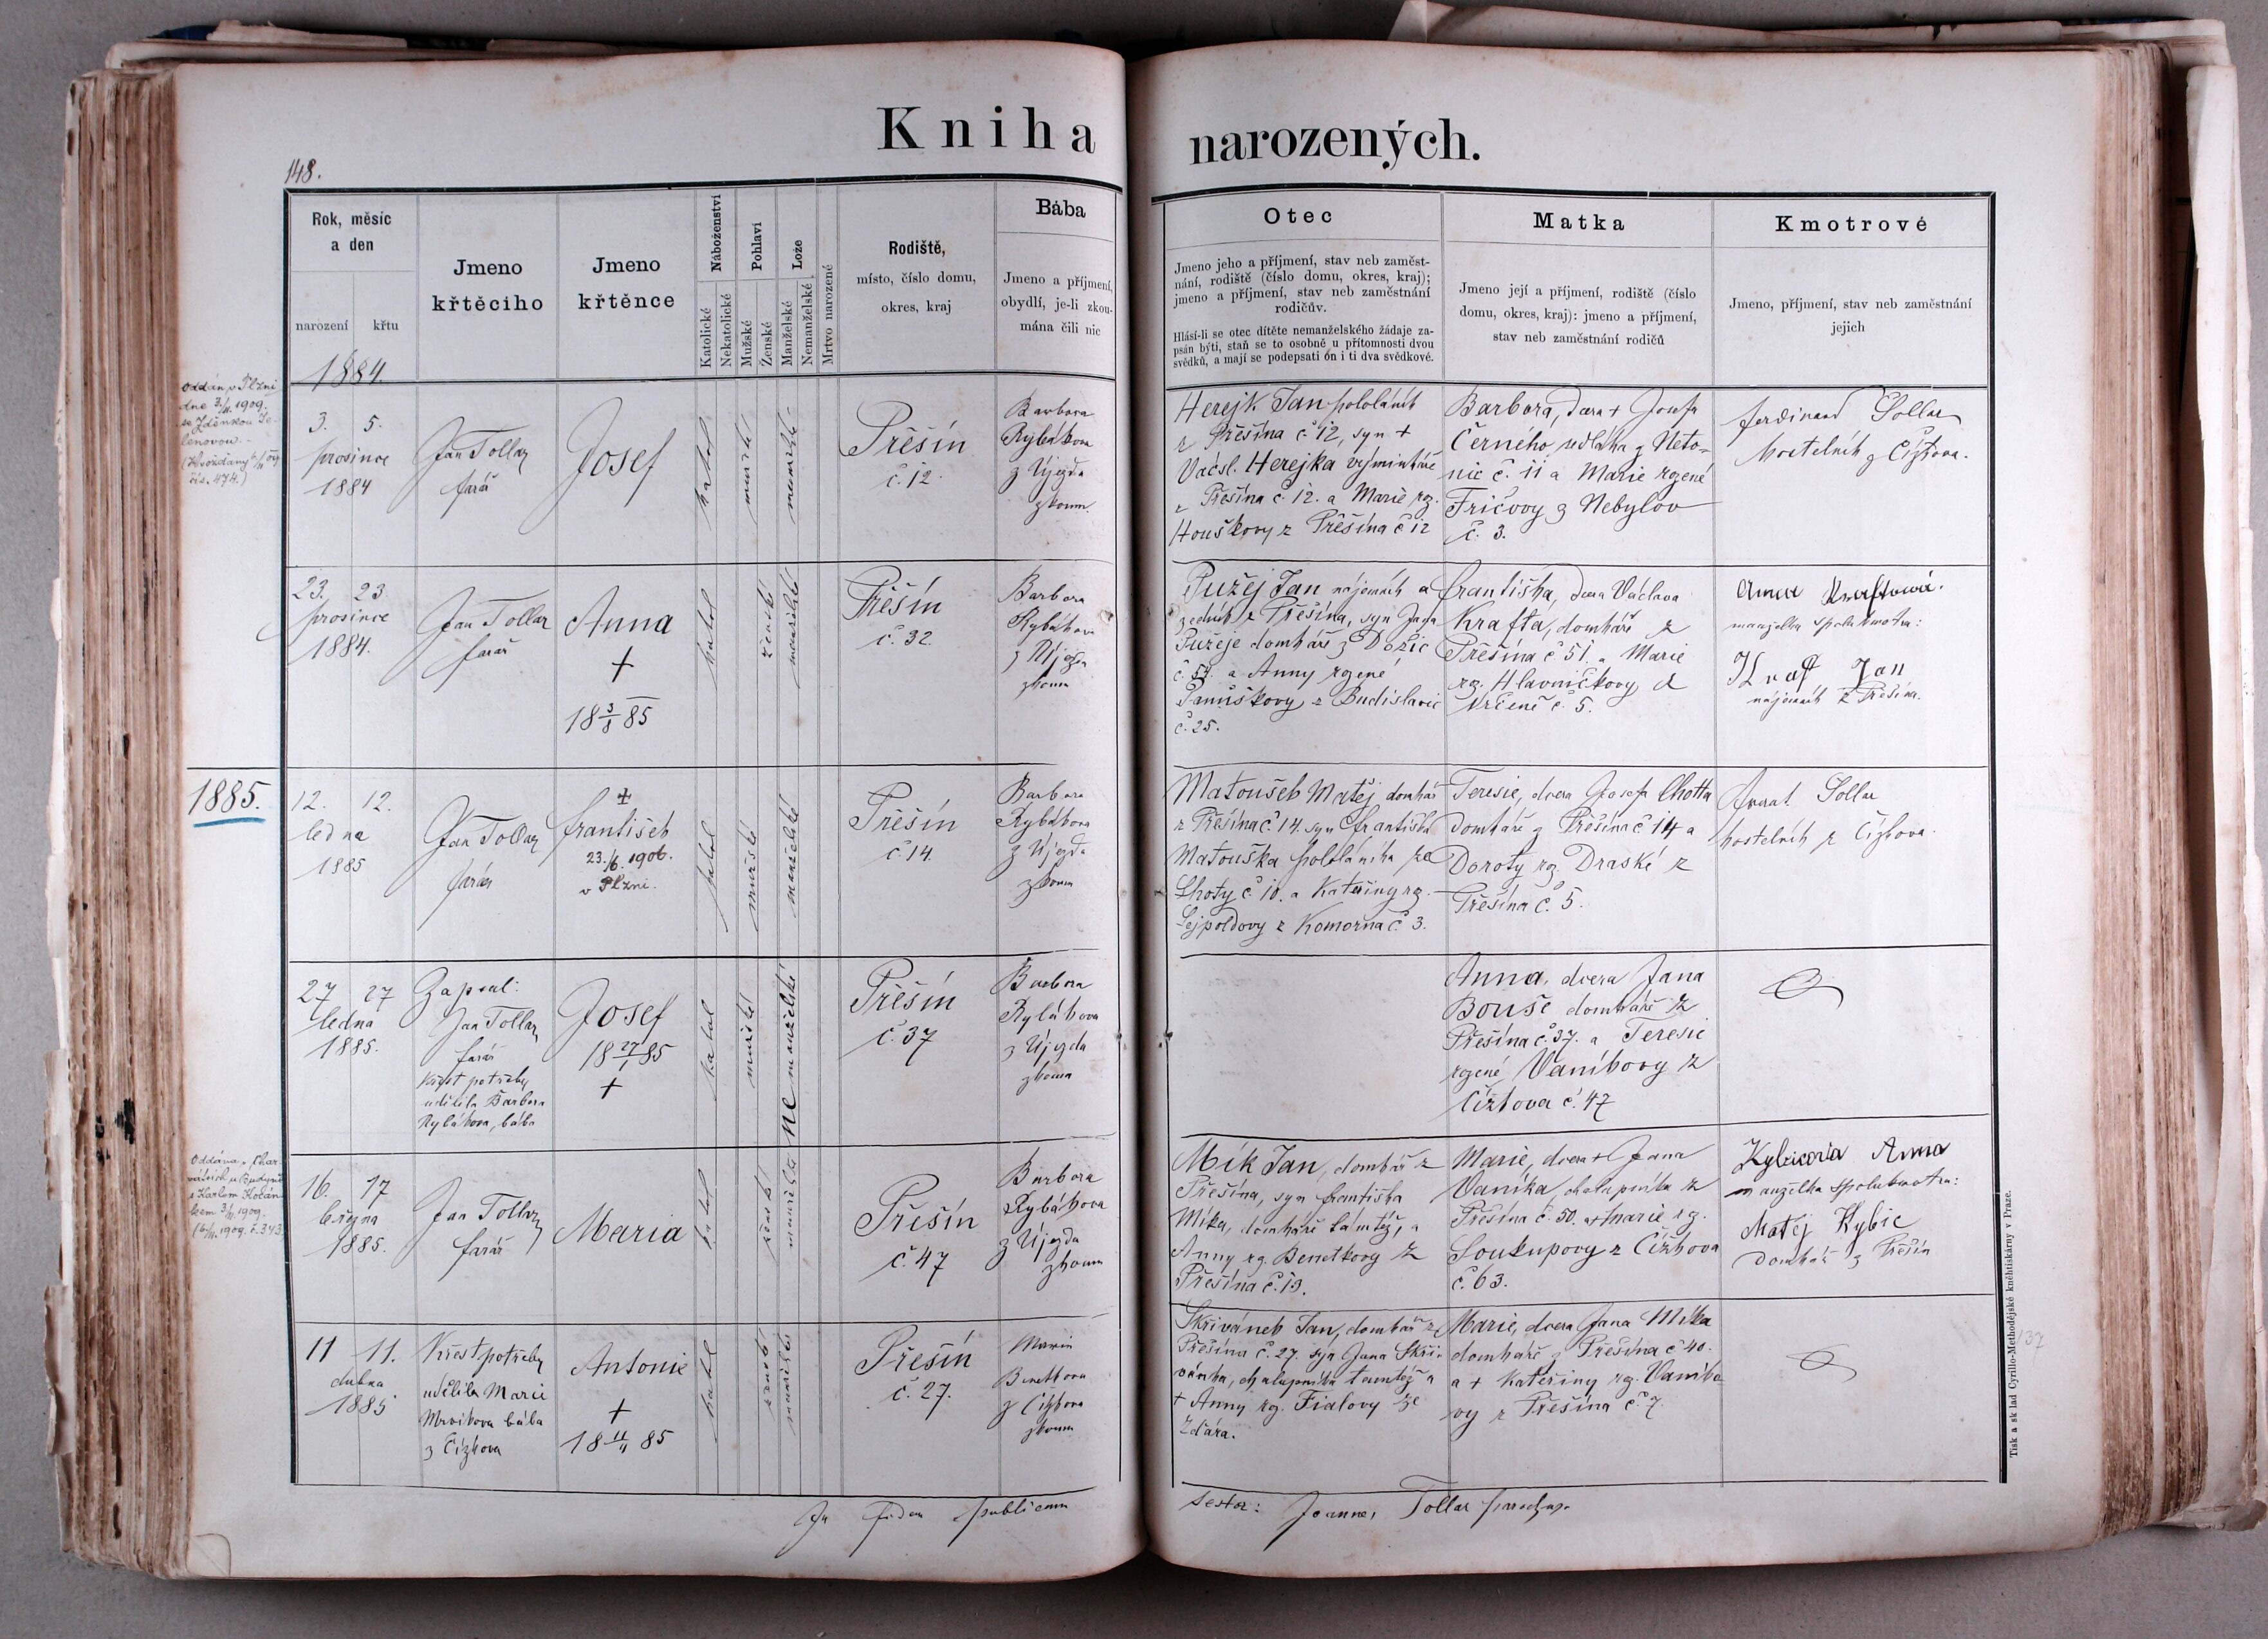 Kniha narozených.
148.
Rok, měsíc
a den
narození
křtu
Jmeno
křtěcího
Jmeno
křtěnce
Náboženství
Katolické
Nekatolické
Pohlaví
Mužské
Ženské
Lože
Manželské
Nemanželské
Mrtvo narozené
Rodiště,
místo, číslo domu,
okres, kraj
Bába
Jmeno a příjmení,
obydlí, je-li zkou-
mána čili nic
Otec
Jmeno jeho a příjmení, stav neb zaměst-
nání, rodiště (číslo domu, okres, kraj);
jmeno a příjmení, stav neb zaměstnání
rodičův.
Hlásí-li se otec dítěte nemanželského žádaje za-
psán býti, staň se to osobné u přítomnosti dvou
svědků, a mají se podepsati on i ti dva svědkové.
Matka
Jmeno její a příjmení, rodiště (číslo
domu, okres, kraj): jmeno a příjmení,
stav neb zaměstnání rodičů
Kmotrové
Jmeno, příjmení, stav neb zaměstnání
jejich
1884.
Oddán v Plzni
dne 3./ 1909.
se Zděnkou Je-
lenovou.
čís. 474.)
3. 5.
prosince
1884
Jan Tollar
farář
Josef
katol
mužské
manželské
Přěšín
č. 12.
Barbora
Rybákova
z Újezda
zkoum.
Herejk Jan pololáník
z Přešína č. 12, syn +
Vácsl. Herejka výminkáře
z Přešína č. 12. a Marie rz.
Houškovy z Přěšína č 12
Barbora, dcera + Josefa
Černého, sedláka z Neto-
nic č. 11 a Marie rozené
Fričovy z Nebylov
č. 3.
Ferdinand Tollar
kostelník z Čížkova.
23. 23
prosince
1884.
Jan Tollar
farář
Anna
+
18 3/8 85
katol
ženské
manželské
Přěšín
č. 32.
Barbora
Rybákova
z Újezda
zkoum
Pužej Jan nájemník a
zedník z Přešína, syn Jana
Pužeje domkáře z Dožic
č. 54. a Anny rozené
z Budislavic
č. 25.
Františka, dcera Václava
Krafta, domkáře z
Přešína č 51. a Marie
rz. Hlavničkovy z
Vrčeně č. 5.
Anna Kraftová.
manželka spolukmotra:
Kraft Jan
nájemník z Přešína.
1885.
12. 12.
ledna
1885
Jan Tollar
farář
+
František
23./6. 1906.
v Plzni.
katol
mužské
manželské
Přěšín
č. 14.
Barbora
Rybákova
z Újezda
zkoum
Matoušek Matěj domkář
z Přešína č. 14. syn Františka
Matouška pololáníka ze
Lhoty č 10. a Kateřiny rz.
Lejpoldovy z Komorna č. 3.
Teresie, dcera Josefa Chotta
domkáře z Přěšína č 14 a
Doroty rz. Draské z
Přěšína č. 5.
Tollar
kostelník z Čížkova.
27 27
ledna
1885.
Zapsal:
Jan Tollar
farář
Křest potřeby
udělila Barbora
Rybákova, bába
Josef
18 27/1 85
+
katol
mužské
nemanželské
Přěšín
č. 37
Barbora
Rybákova
z Újezda
zkoum
Anna, dcera Jana
Bouše domkáře z
Přěšína č. 37. a Teresie
rozené Vaníkovy z
Čížkova č. 47
Oddána v Char-
u Budyně
s Karlem Kočán-
kem 3/ 1909.
1909. č. 343
16. 17
března
1885.
Jan Tollar
farář
Maria
katol
ženské
manželské
Přešín
č. 47
Barbora
Rybákova
z Újezda
zkoum
Mík Jan, domkář z
Přešína, syn Františka
Míka, domkáře tamtéž, a
Anny rz. Benetkovy z
Přěšína č. 19.
Marie, dcera + Jana
Vaníka, chalupníka z
Přěšína č. 50. a Marie rz.
Soukupovy z Čížkova
č. 63.
Kybicova Anna
manželka spolukmotra:
Matěj Kybic
domkář z Přešín
11 11.
dubna
1885
Křest potřeby
udělila Marie
Mrvíkova bába
z Čížkova
Antonie
+
18 11/4 85
katol
ženské
manželské
Přešín
č. 27.
Marie
z Čížkova
zkoum
Skřivánek Jan, domkář z
Přešína č. 27. syn Jana Skři-
vánka, chalupníka tamtéž a
+ Anny rz. Fialovy ze
Žďára.
Marie, dcera Jana Míka
domkáře z Přěšína č 40.
a + Kateřiny rz. Vaníko-
vy z Přěšína č. 7.
In fidem publicam
testor: Joannes Tollar parochus
Tisk a sklad Cyrillo-Methodějské kněhtiskárny v Praze.
137